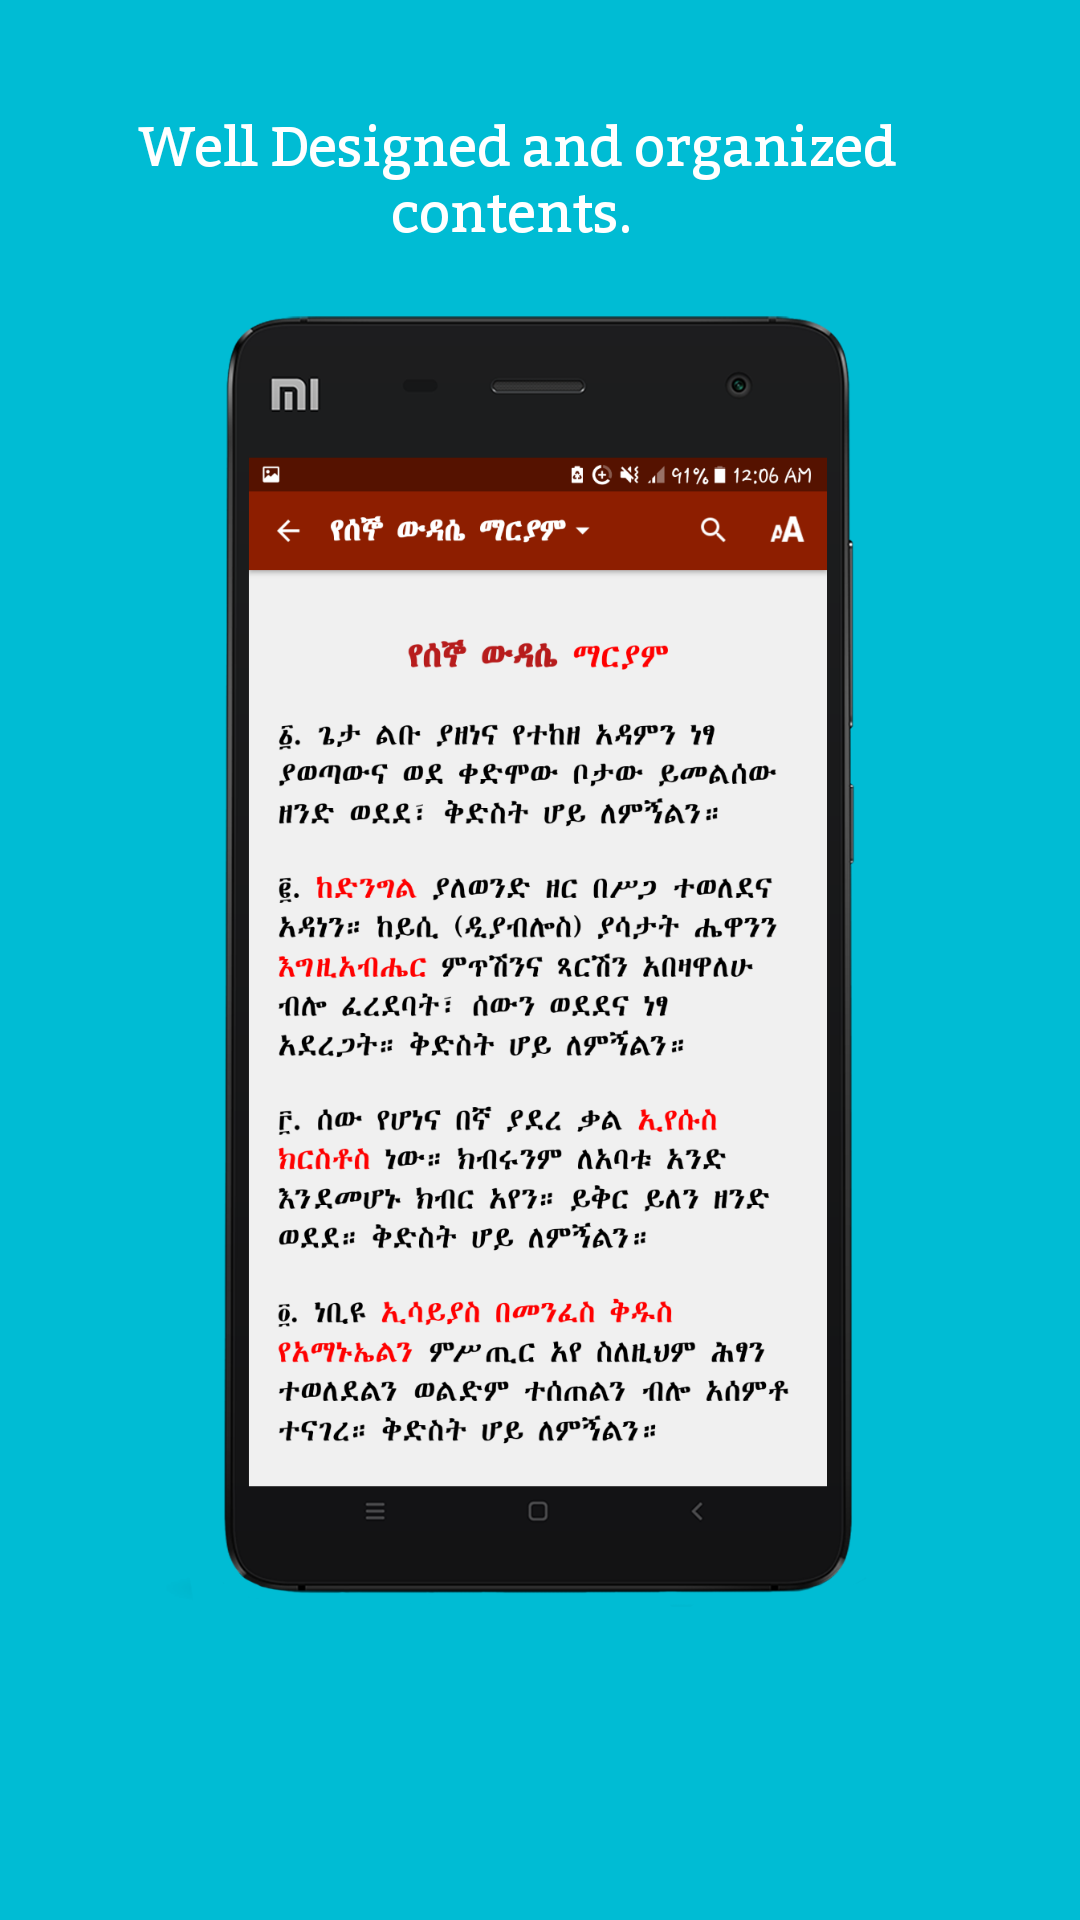 Well Designed and organized
contents.
MI
91% 12:06 AM
የሰኞ ውዳሴ ማርያም
AA
የሰኞ ውዳሴ ማርያም
፩. ጌታ ልቡ ያዘነና የተከዘ አዳምን ነፃ
ያወጣውና ወደ ቀድሞው ቦታው ይመልሰው
ዘንድ ወደደ፣ ቅድስት ሆይ ለምኝልን።
፪. ከድንግል ያለወንድ ዘር በሥጋ ተወለደና
አዳነን። ከይሲ (ዲያብሎስ) ያሳታት ሔዋንን
እግዚአብሔር ምጥሽንና ጻርሽን አበዛዋለሁ
ብሎ ፈረደባት፣ ሰውን ወደደና ነፃ
አደረጋት። ቅድስት ሆይ ለምኝልን።
፫. ሰው የሆነና በኛ ያደረ ቃል ኢየሱስ
ክርስቶስ ነው። ክብሩንም ለአባቱ አንድ
እንደመሆኑ ክብር አየን። ይቅር ይለን ዘንድ
ወደደ። ቅድስት ሆይ ለምኝልን።
፬. ነቢዩ ኢሳይያስ በመንፈስ ቅዱስ
የአማኑኤልን ምሥጢር አየ ስለዚህም ሕፃን
ተወለደልን ወልድም ተሰጠልን ብሎ አሰምቶ
ተናገረ። ቅድስት ሆይ ለምኝልን።